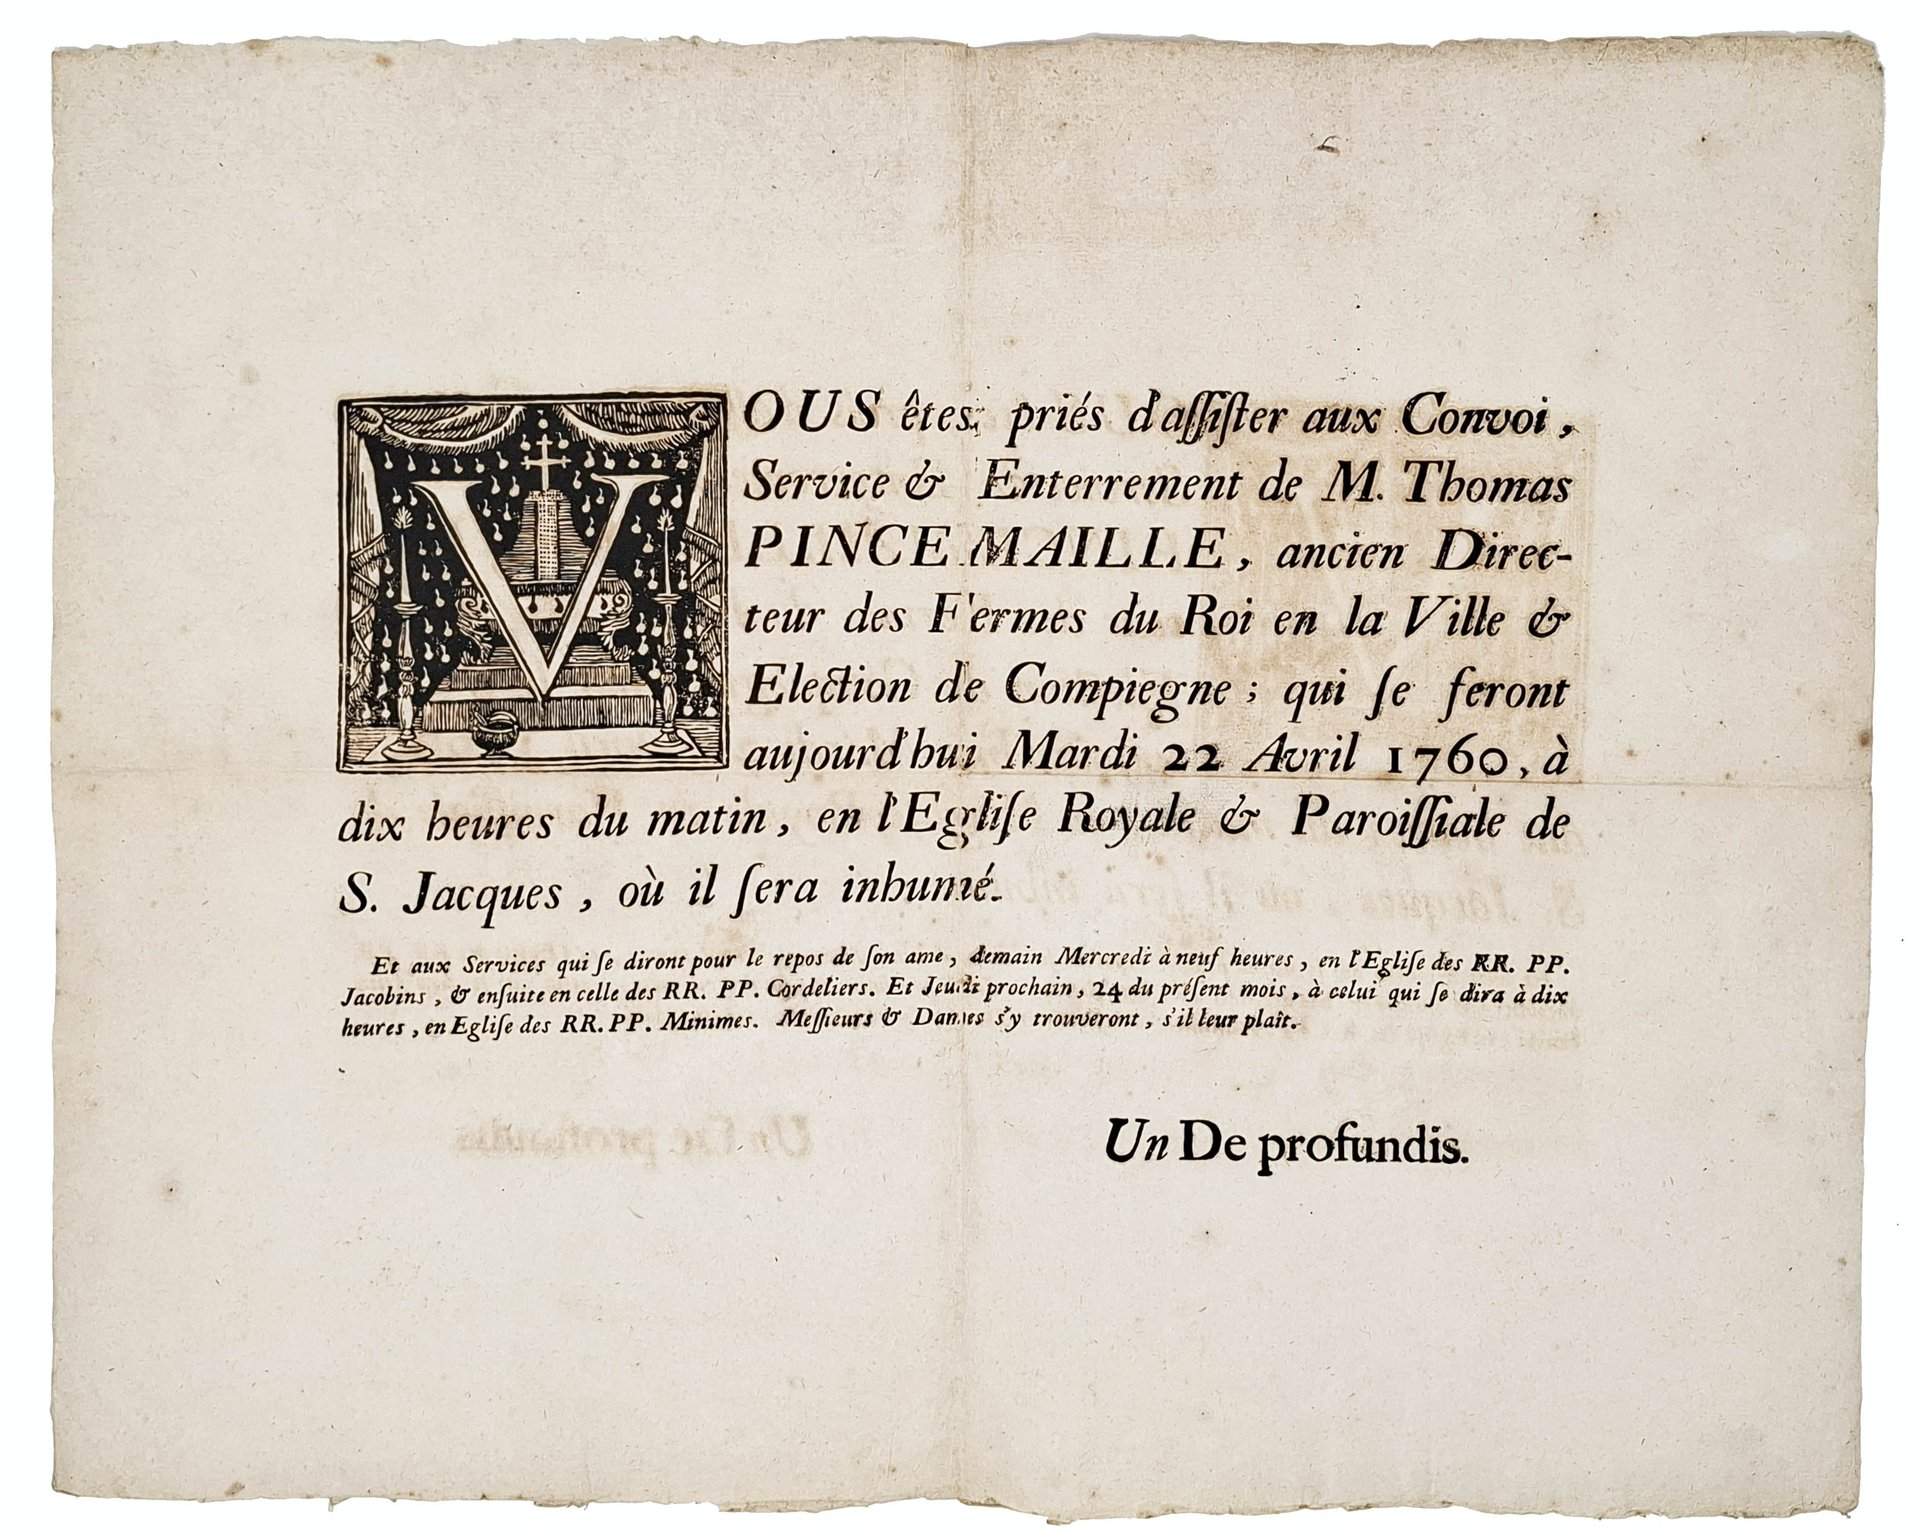 VOUS êtes priés d'aſſiſter aux Convoi,
Service & Enterrement de M. Thomas
PINCEMAILLE, ancien Direc-
teur des Fermes du Roi en la Ville &
Election de Compiegne; qui ſe feront
aujourd'hui Mardi 22 Avril 1760, à
dix heures du matin, en l'Egliſe Royale & Paroiſſiale de
S. Jacques, où il ſera inhumé.
Et aux Services qui ſe diront pour le repos de ſon ame, demain Mercredi à neuf heures, en l'Egliſe des RR. PP.
Jacobins, & enſuite en celle des RR. PP. Cordeliers. Et Jeudi prochain, 24 du préſent mois, à celui qui ſe dira à dix
heures, en Egliſe des RR. PP. Minimes. Meſſieurs & Dames s'y trouveront, s'il leur plaît.
Un De profundis.